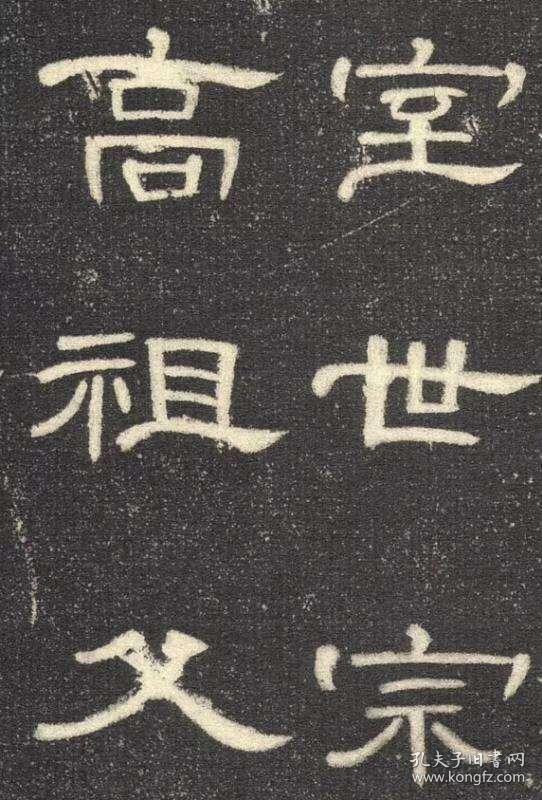 室世宗
高祖父
孔夫子旧书网
www.kongfz.com